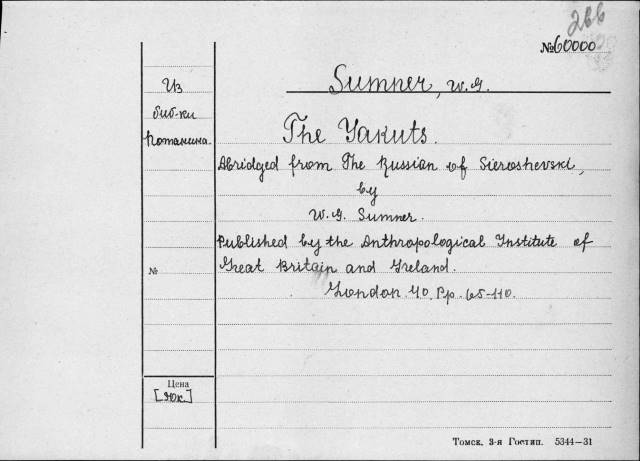 266
№ 60000
Sumner, W.G.
Из
биб-ки
Потанина.
The Yakuts.
Abridged from The Russian of Sieroshevski,
by
W.G. Sumner.
Published by the Anthropological Institute of
Great Britain and Ireland.
№
London. 40. Pp. 65-110.
Цена
[10к.]
Томск. 3-я Гостип. 5344—31